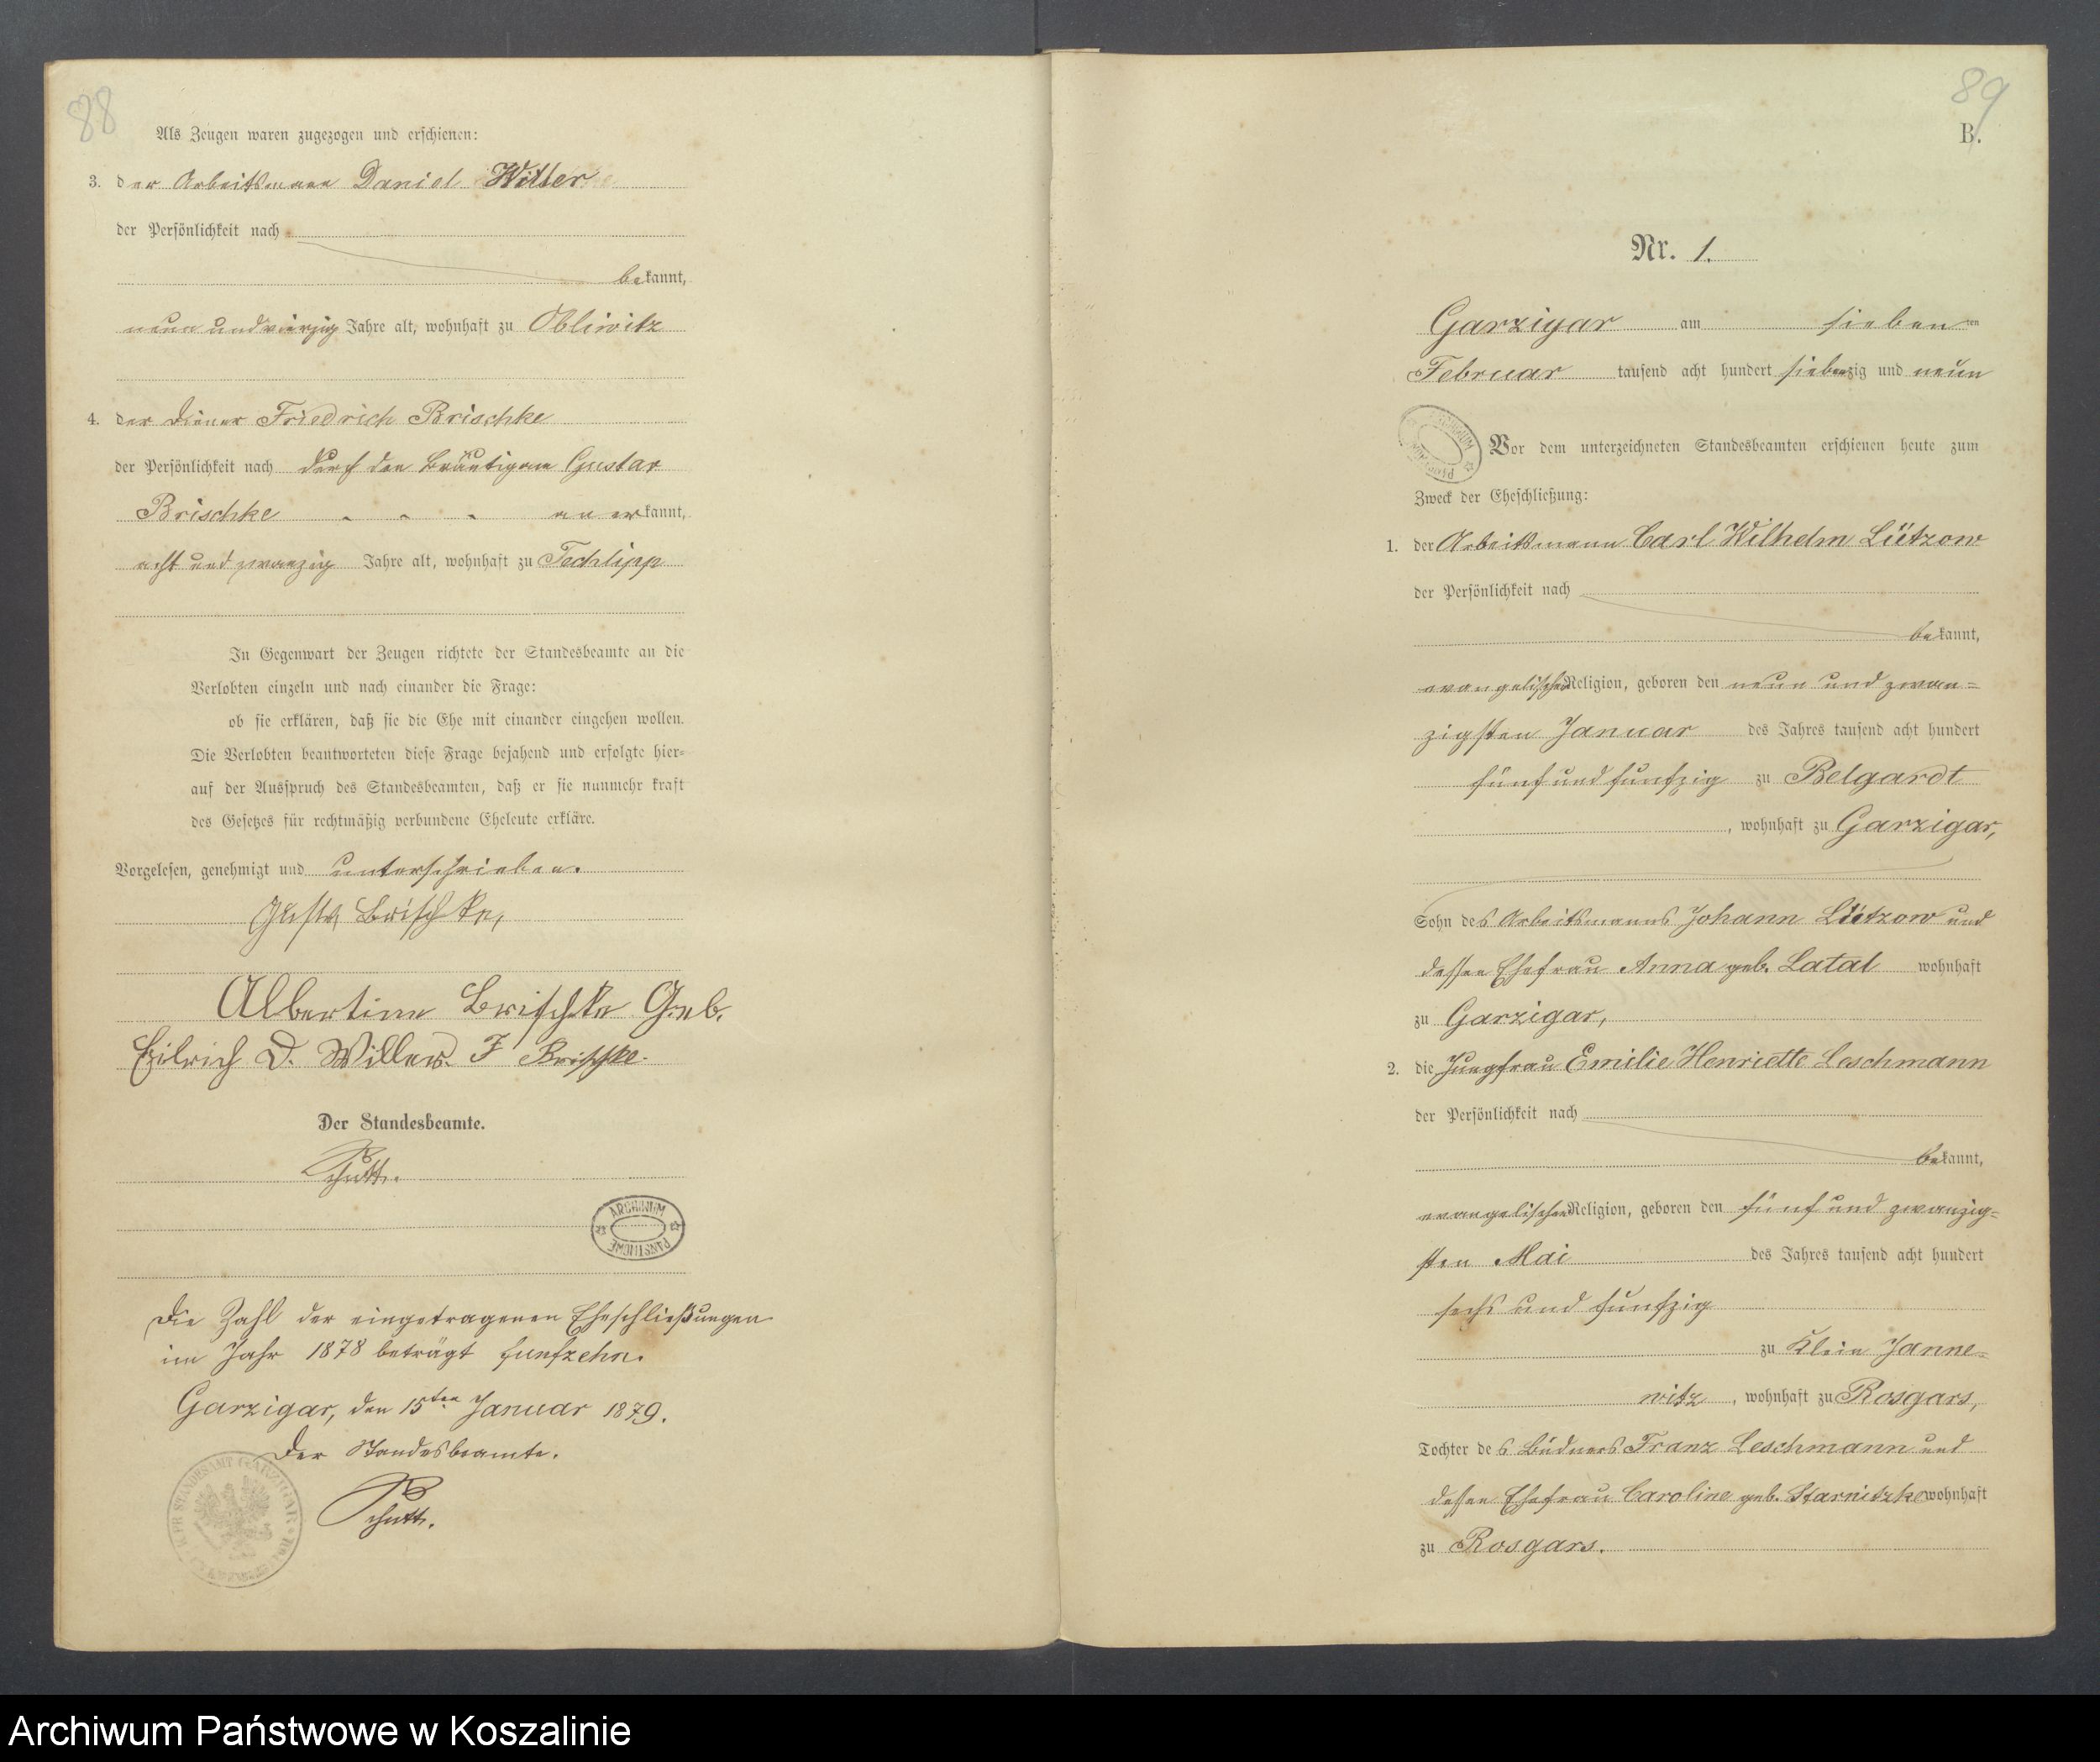 88
Als Zeugen waren zugezogen und erschienen:
3. der Arbeitsmann Daniel Willer
der Persönlichkeit nach
bekannt,
neun und vierzig Jahre alt, wohnhaft zu Obliwitz
4. der Diener Friedrich Brischke
der Persönlichkeit nach durch den Bräutigam Gustav
Brischke - - - anerkannt,
acht und zwanzig Jahre alt, wohnhaft zu Techlipp
In Gegenwart der Zeugen richtete der Standesbeamte an die
Verlobten einzeln und nach einander die Frage:
ob sie erklären, daß sie die Ehe mit einander eingehen wollen.
Die Verlobten beantworteten diese Frage bejahend und erfolgte hier=
auf der Ausspruch des Standesbeamten, daß er sie nunmehr kraft
des Gesetzes für rechtmäßig verbundene Eheleute erkläre.
Vorgelesen, genehmigt und unterschrieben.
Gustav Brischke,
Albertine Brischke Geb.
D. Willer. F Brischke.
Der Standesbeamte.
Schutt.
ARCHIWUM PAŃSTWOWE
Die Zahl der eingetragenen Eheschließungen
im Jahr 1878 beträgt funfzehn.
Garzigar, den 15ten Januar 1879.
Der Standesbeamte.
Schutt.
STANDESAMT GARZIGAR
89
B.
Nr. 1.
Garzigar am sieben ten
Februar tausend acht hundert siebenzig und neun
ARCHIWUM PAŃSTWOWE
Vor dem unterzeichneten Standesbeamten erschienen heute zum
Zweck der Eheschließung:
1. der Arbeitsmann Carl Wilhelm Lützow
der Persönlichkeit nach
bekannt,
evangelischer Religion, geboren den neun und zwan=
zigsten Januar des Jahres tausend acht hundert
fünf und funfzig zu Belgardt
, wohnhaft zu Garzigar,
Sohn des Arbeitsmanns Johann Lützow und
dessen Ehefrau Anna geb. Latal wohnhaft
zu Garzigar,
2. die Jungfrau Emilie Henriette Leschmann
der Persönlichkeit nach
bekannt,
evangelischer Religion, geboren den fünf und zwanzig=
sten Mai des Jahres tausend acht hundert
sechs und funfzig
zu Klein Janne=
witz, wohnhaft zu Rosgars,
Tochter des Büdners Franz Leschmann und
dessen Ehefrau Caroline geb. Starnitzke wohnhaft
zu Rosgars.
Archiwum Państwowe w Koszalinie